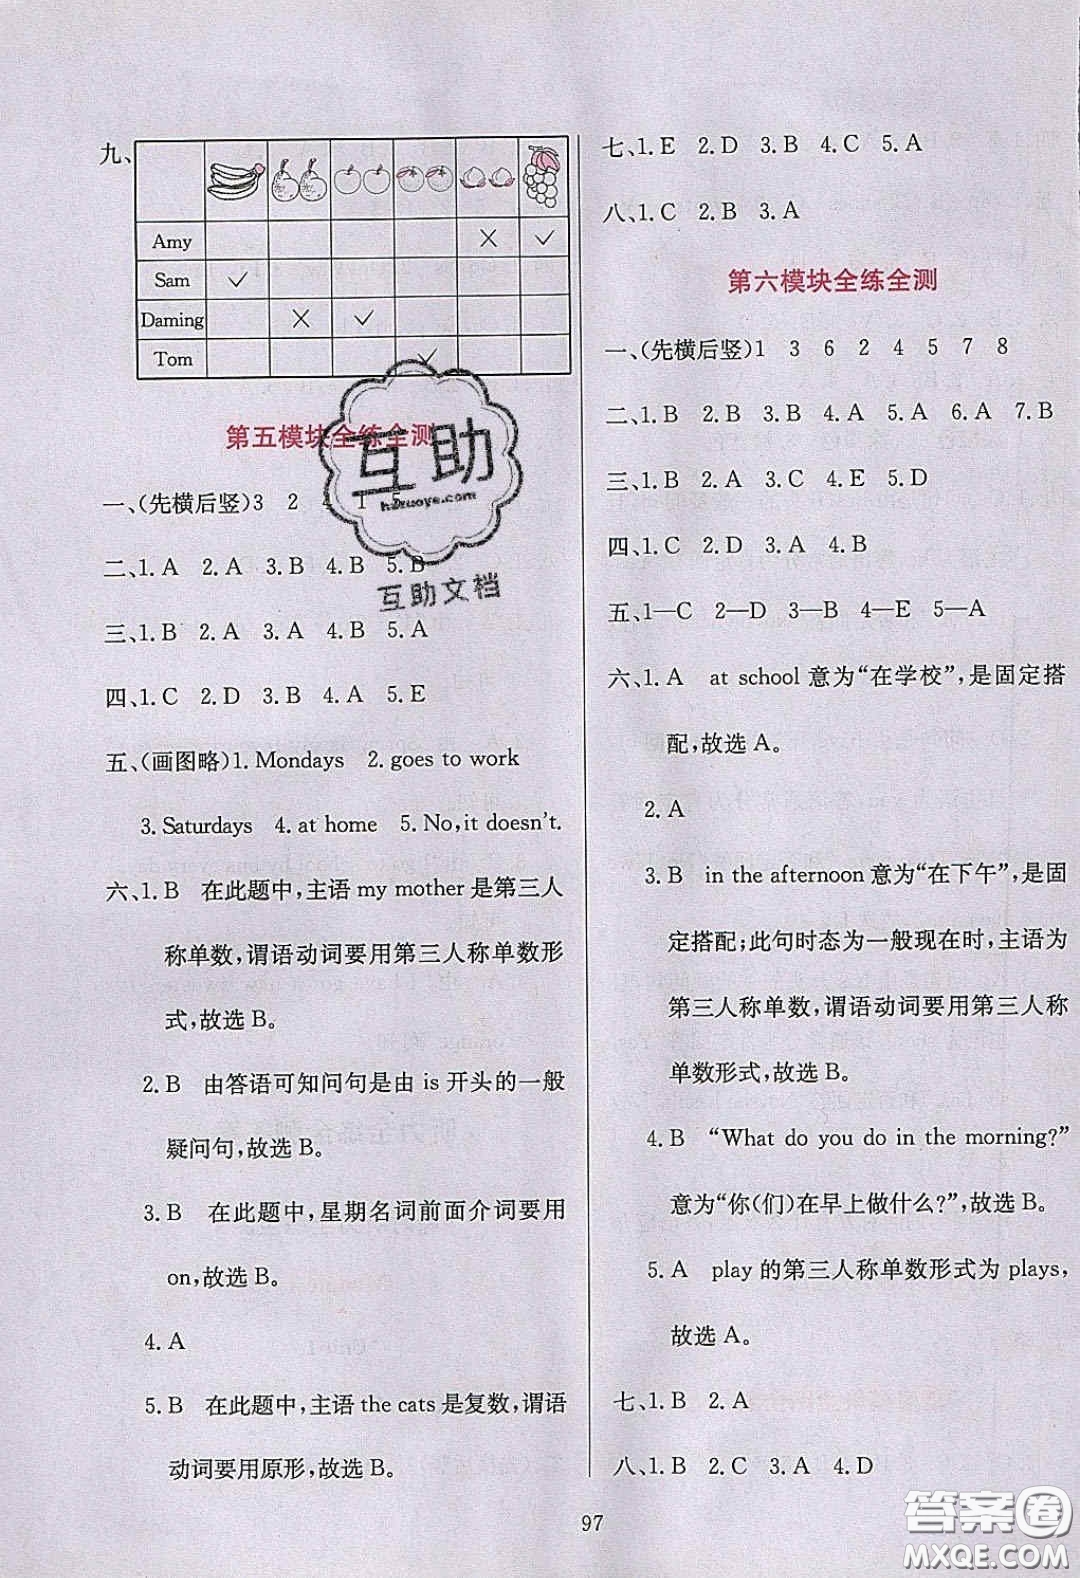 九、
Amy × ✓
Sam ✓
Daming × ✓
Tom ✓
第五模块全练全测
一、(先横后竖)3 2 4 1 5
二、1. A 2. A 3. B 4. B 5. B
三、1. B 2. A 3. A 4. B 5. A
四、1. C 2. D 3. B 4. A 5. E
五、(画图略)1. Mondays 2. goes to work
3. Saturdays 4. at home 5. No, it doesn't.
六、1. B 在此题中,主语 my mother 是第三人
称单数,谓语动词要用第三人称单数形
式,故选 B。
2. B 由答语可知问句是由 is 开头的一般
疑问句,故选 B。
3. B 在此题中,星期名词前面介词要用
on,故选 B。
4. A
5. B 在此题中,主语 the cats 是复数,谓语
动词要用原形,故选 B。
七、1. E 2. D 3. B 4. C 5. A
八、1. C 2. B 3. A
第六模块全练全测
一、(先横后竖)1 3 6 2 4 5 7 8
二、1. B 2. B 3. B 4. A 5. A 6. A 7. B
三、1. B 2. A 3. C 4. E 5. D
四、1. C 2. D 3. A 4. B
五、1—C 2—D 3—B 4—E 5—A
六、1. A at school 意为“在学校”,是固定搭
配,故选 A。
2. A
3. B in the afternoon 意为“在下午”,是固
定搭配;此句时态为一般现在时,主语为
第三人称单数,谓语动词要用第三人称
单数形式,故选 B。
4. B “What do you do in the morning?”
意为“你(们)在早上做什么?”,故选 B。
5. A play 的第三人称单数形式为 plays,
故选 A。
七、1. B 2. A
八、1. B 2. C 3. A 4. D
97
互助
互助文档
答案圈
MXQE.COM